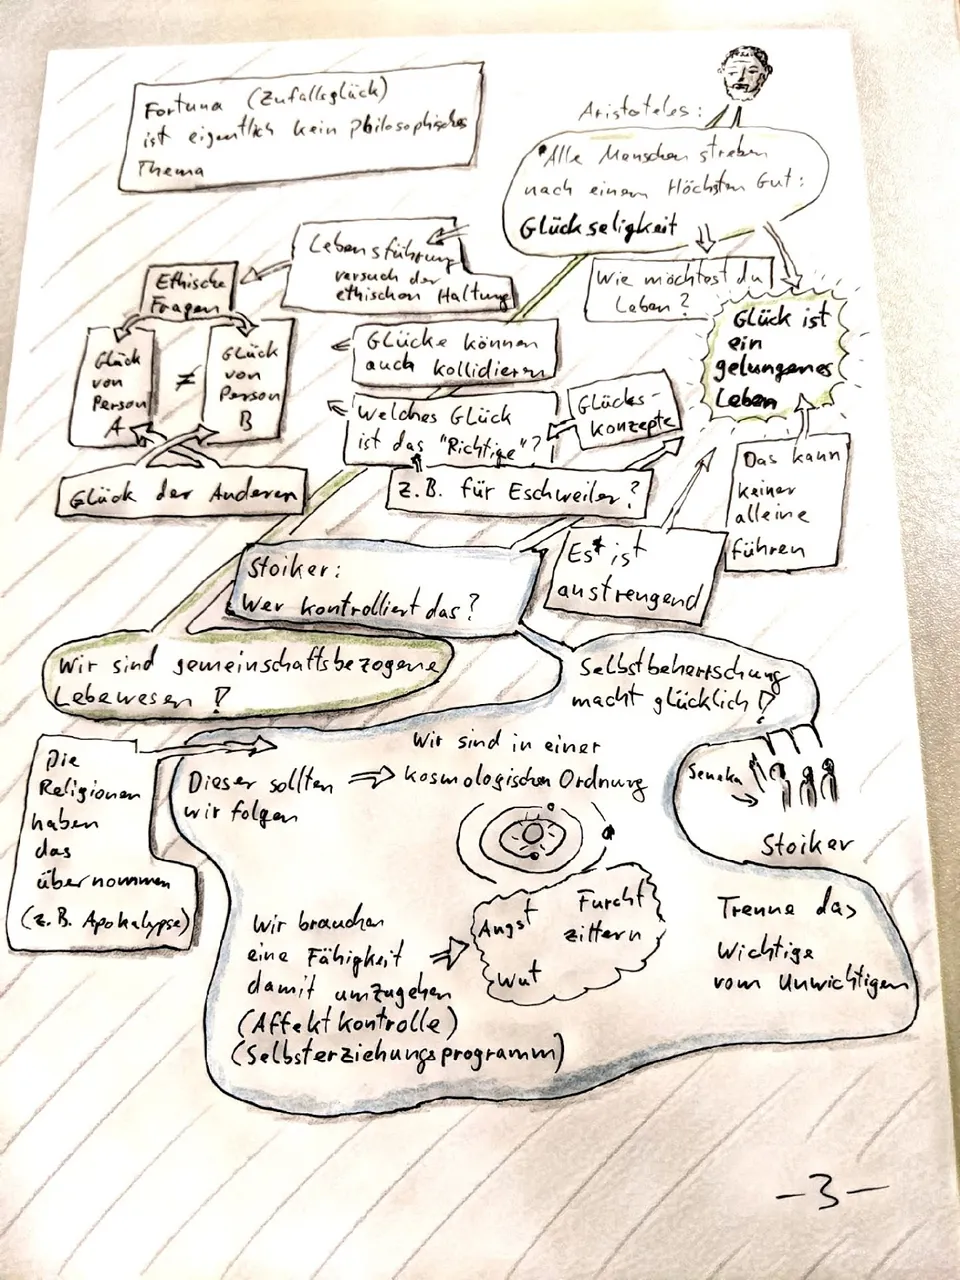 Fortuna (Zufallsglück)
ist eigentlich kein Philosophisches
Thema
Aristoteles:
"Alle Menschen streben
nach einem Höchsten Gut:
Glückseligkeit
Lebensführung
versuch der
ethischen Haltung
Ethische
Fragen
Wie möchtest du
Leben?
Glück ist
ein
gelungenes
Leben
Glück
von
Person
A
≠
Glück
von
Person
B
Glücke können
auch kollidieren
Welches Glück
ist das "Richtige"?
Glücks-
konzepte
Glück der Anderen
z.B. für Eschweiler?
Das kann
keiner
alleine
führen
Stoiker:
Wer kontrolliert das?
Es ist
anstrengend
Wir sind gemeinschaftsbezogene
Lebewesen !?
Selbstbeherrschung
macht glücklich !?
Die
Religionen
haben
das
übernommen
(z.B. Apokalypse)
Dieser sollten
wir folgen
Wir sind in einer
kosmologischen Ordnung
Seneka
Stoiker
Wir brauchen
eine Fähigkeit
damit umzugehen
(Affektkontrolle)
(Selbsterziehungsprogramm)
Angst
Furcht
zittern
Wut
Trenne das
Wichtige
vom Unwichtigen
-3-